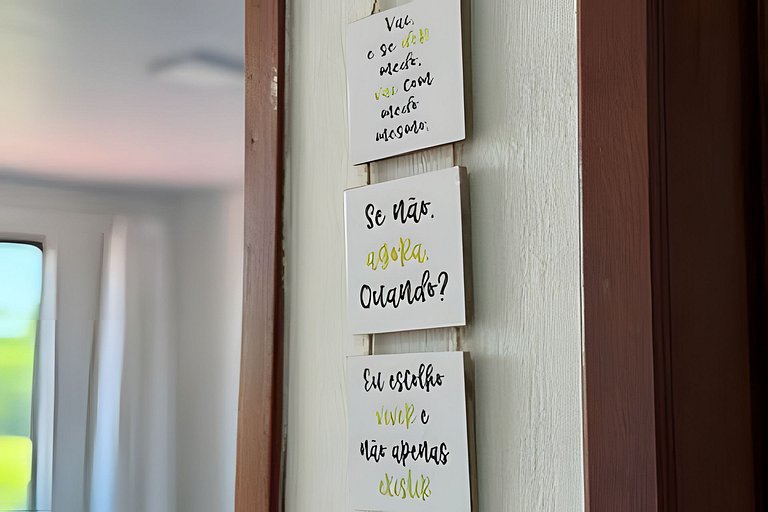 Vai,
e se der
medo,
vai com
medo
mesmo;
Se não.
agora.
Quando?
Eu escolho
viver e
não apenas
existir